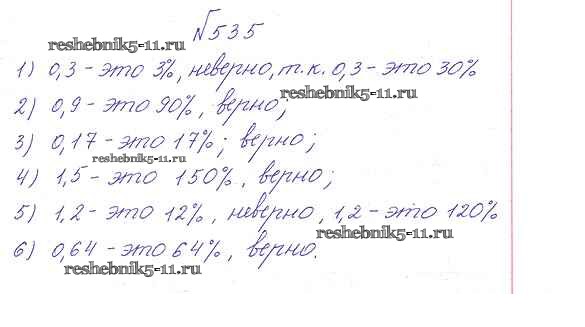 №535
reshebnik5-11.ru
1) 0,3 - это 3%, неверно, т.к. 0,3 - это 30%
reshebnik5-11.ru
2) 0,9 - это 90%, верно;
3) 0,17 - это 17%; верно;
reshebnik5-11.ru
4) 1,5 - это 150%, верно;
5) 1,2 - это 12%, неверно, 1,2 - это 120%
reshebnik5-11.ru
6) 0,64 - это 64%, верно.
reshebnik5-11.ru